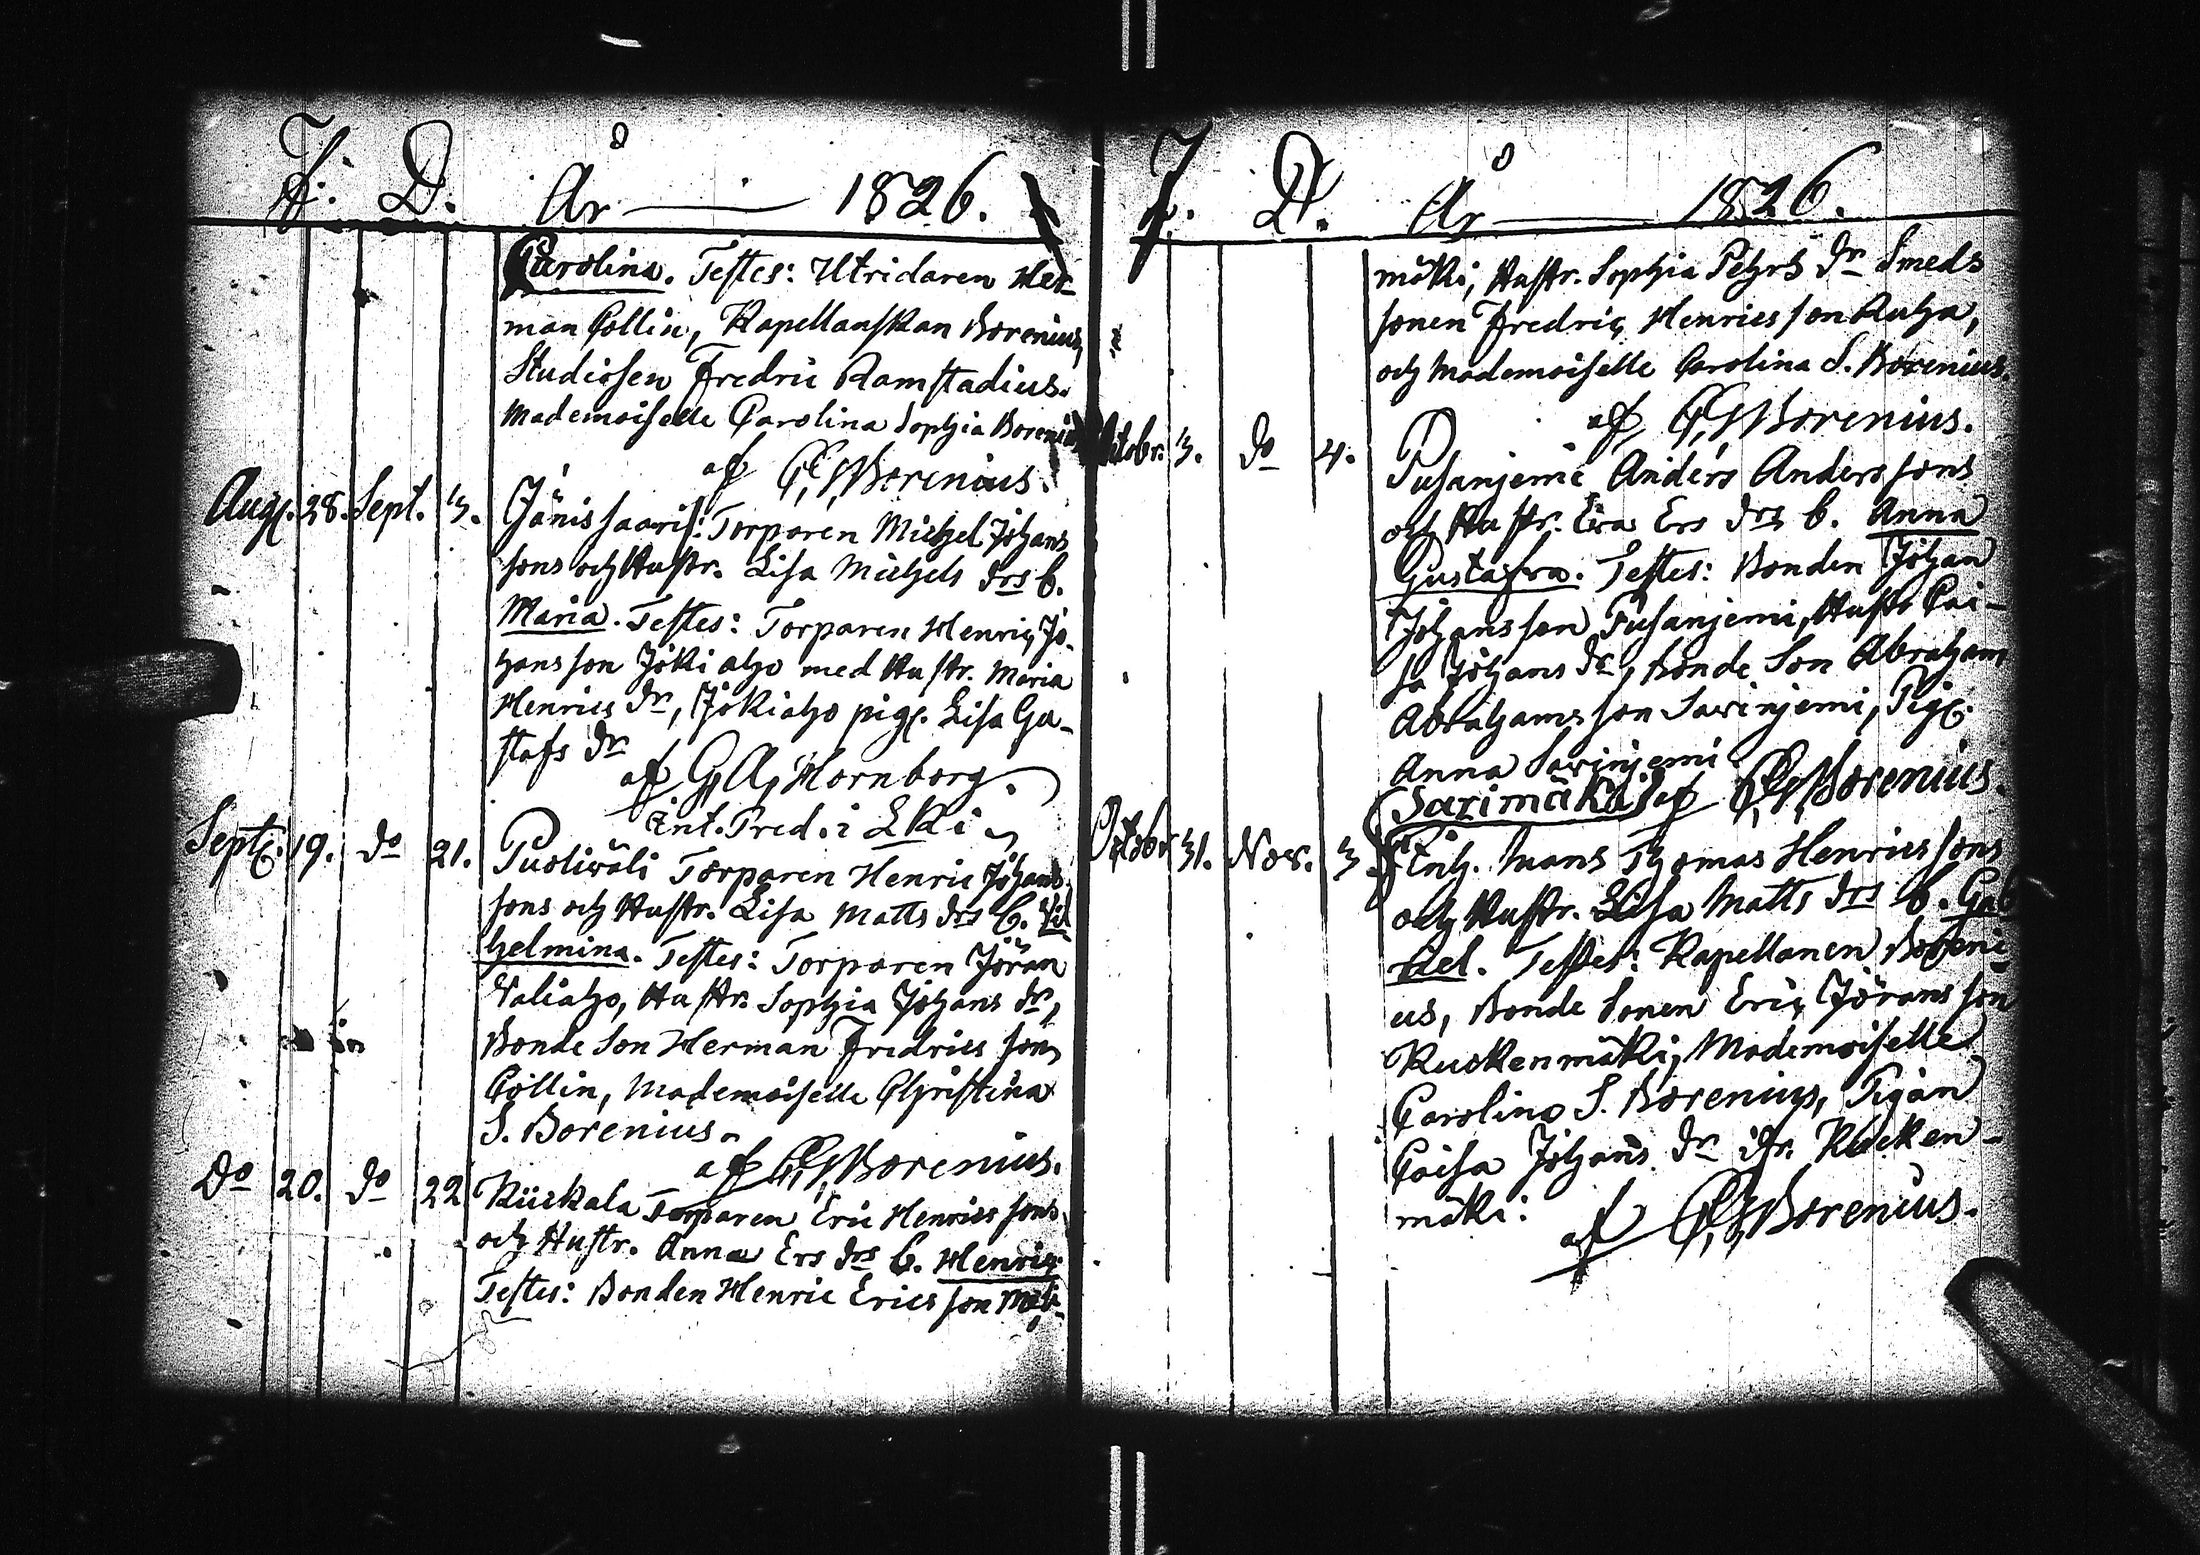 F. D. År — 1826.
Carolina. Testes: Utridaren Her-
man Collin, Kapellanskan Borenius,
Studiosen Fredric Ramstadius.
Mademoiselle Carolina Sophia Borenius
af C,G,Borenius.
Aug. 28. Sept. 3. Jänissaari: Torparen Michel Johans
sons och Hustr. Lisa Michels drs b.
Maria. Testes: Torparen Henric Jo-
hansson Jokiaho med Hustr. Maria
Henrics dr, Jokiaho pig. Lisa Gu-
stafs dr
af G,A, Hornborg.
Ent. Pred. i
Sept. 19. do 21. Puoliwäli Torparen Henric Johans
sons och Hustr. Lisa Matts drs b. Vil
helmina. Testes: Torparen Jöran
Valiaho, Hustr. Sophia Johans dr,
Bonde Son Herman Fredrics son
Collin, Mademoiselle Christina
S. Borenius.
af C,G,Borenius.
Do 20. do 22 Kuckala Torparen Eric Henrics sons
och Hustr. Anna Ers drs b. Henric
Testes: Bonden Henric Ericsson Mäki-
F. D. År — 1826.
mäki, Hustr. Sophia Pehrs dr Smeds
sonen Fredric Henricsson Ruha,
och Mademoiselle Carolina S. Borenius.
af C,G,Borenius.
Octobr. 3. do 4. Pusanjemi Anders Anderssons
och Hustr. Eva Ers drs b. Anna
Gustafva. Testes: Bonden Johan
Johansson Pusanjemi, Hustr Cai-
sa Johans dr, bonde Son Abraham
Abrahamsson Savinjemi, Pig.
Anna Savinjemi
Sarimäki af C,G,Borenius.
Octobr 31. Nov. 3 Inh. Mans Thomas Henricssons
och Hustr. Lisa Matts drs b. Gab
riel. Testes: Kapellanen Boreni-
us, Bonde Sonen Eric Jöransson
Kuckenmäki, Mademoiselle
Carolina S. Borenius, Pigan
Caisa Johans dr fr. Kucken-
mäki.
af C,G,Borenius.